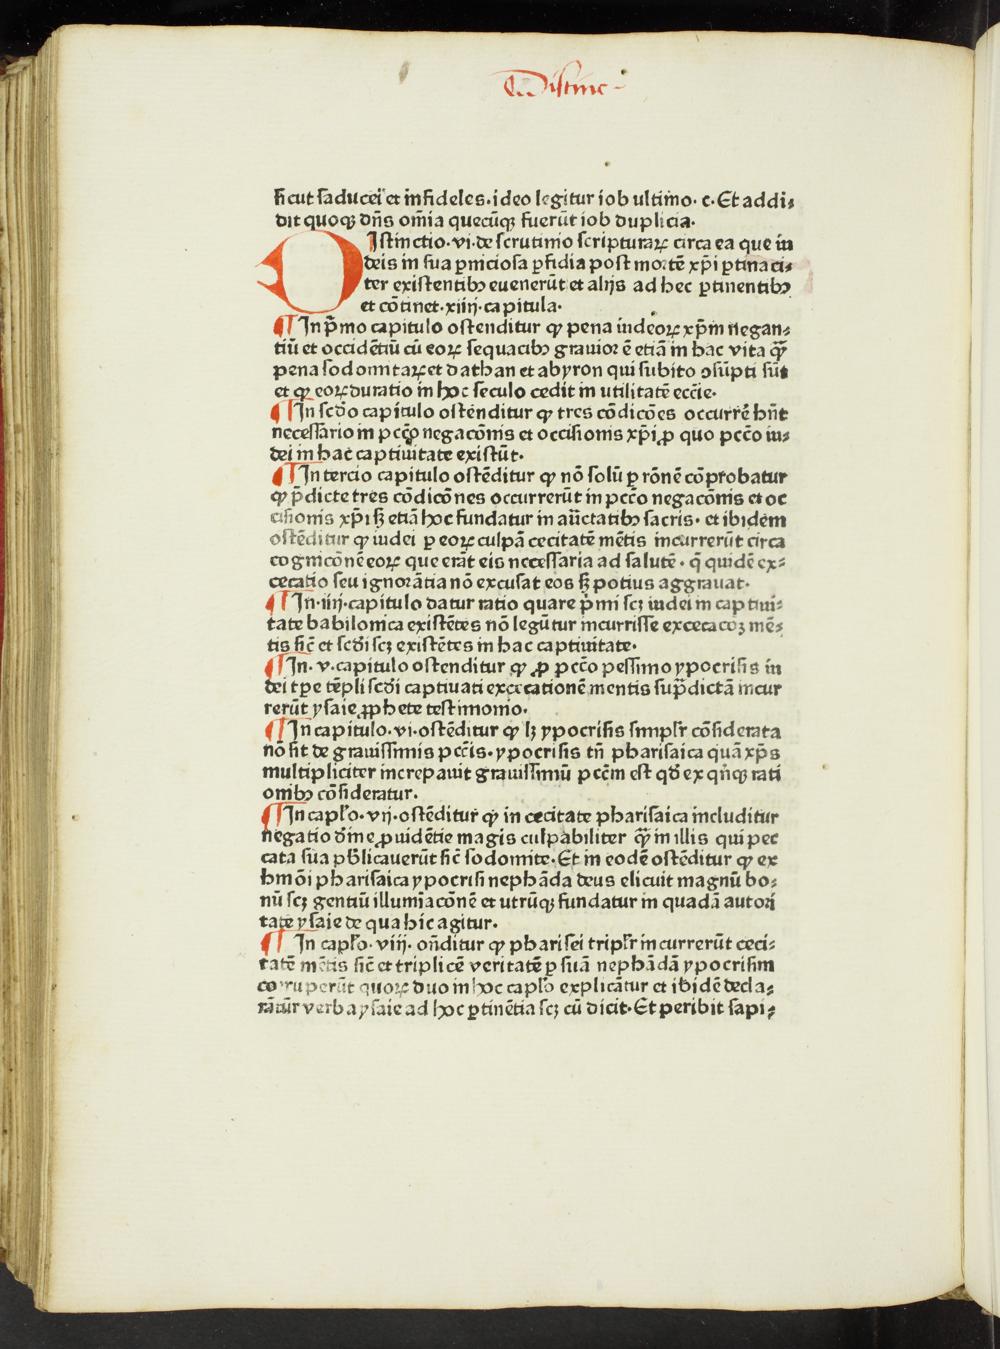 Distinc-
ſicut ſaducei et infideles·ideo legitur iob ultimo· c·Et addi⸗
dit quoqꝫ dn̄s om̄ia quecūqꝫ fuerūt iob duplicia·
DIſtinctio·vi·de ſcrutinio ſcripturaꝝ circa ea que iu
deis in ſua ꝑniciosa ꝑfidia poſt mortē xp̄i ꝑtinaci⸗
ter exiſtentibꝰ euenerūt et alijs ad hec ꝑtinentibꝰ
et cōtinet·xiiij·capitula·
¶ In p̄mo capitulo oſtenditur ꝙ pena iudeoꝝ xp̄m negan⸗
tiū et occidentiū cū eoꝝ ſequacibꝰ grauior ē etiā in hac vita ꝙ̄
pena ſodomitaꝝ et dathan et abyron qui ſubito ↄſūpti ſūt
et ꝙ eoꝝ duratio in hoc ſeculo cedit in utilitatē ecc̄ie·
¶ In ſcd̄o capitulo oſtēnditur ꝙ tres cōdicōes occurrē hn̄t
neceſſario in pcc̄o negacōnis et occiſionis xp̄i ꝓ quo pcc̄o iu⸗
dei in hac captiuitate exiſtūt·
¶ In tercio capitulo oſtēditur ꝙ nō ſolū ꝑ rōnē cōprobatur
ꝙ p̄dicte tres cōdicōnes occurrerūt in pcc̄o negacōnis et oc
ciſionis xp̄i ſꝫ etiā hoc fundatur in auc̄tatibꝰ ſacris· et ibidem
oſtēditur ꝙ iudei ꝑ eoꝝ culpā cecitatē mētis incurrerūt circa
cognicōnē eoꝝ que erāt eis neceſſaria ad ſalutē · q̄ quidē ex⸗
cecatio ſeu ignorātia nō excuſat eos ſꝫ potius aggrauat·
¶ In·iiij·capitulo datur ratio quare p̄mi ſcꝫ iudei in captiui⸗
tate babilonica exiſtētes nō legūtur incurriſſe excecacoꝫ mē⸗
tis ſic̄ et ſcd̄i ſcꝫ exiſtētes in hac captiuitate·
¶ In· v·capitulo oſtenditur ꝙ ꝓ pcc̄o peſſimo ypocriſis iu
dei tꝑe tēpli ſcd̄i captiuati excecationē mentis ſup̄dictā incur
rerūt yſaie ꝓphete teſtimonio·
¶ In capitulo·vi·oſtēditur ꝙ lꝫ ypocriſis ſimplr̄ cōſiderata
nō ſit de grauiſſimis pcc̄is·ypocriſis tn̄ phariſaica quā xp̄s
multipliciter increpauit grauiſſimū pcc̄m eſt qd̄ ex qn̄qꝫ rati
onibꝰ cōſideratur·
¶ In capl̄o·vij·oſtēditur ꝙ in cecitate phariſaica includitur
negatio dīne ꝓuidētie magis culpabiliter ꝙ̄ in illis qui pec
cata ſua pb̄licauerūt ſic̄ ſodomite·Et in eodē oſtēditur ꝙ ex
hmōi phariſaica ypocriſi nephāda deus elicuit magnū bo⸗
nū ſcꝫ gentiū illumīacōnē et utrūqꝫ fundatur in quadā autori
tate yſaie de qua hic agitur·
¶ In capl̄o·viij·on̄ditur ꝙ phariſei triplr̄ incurrerūt ceci⸗
tatē mētis ſic̄ et triplicē veritatē ꝑ ſuā nephādā ypocriſim
corruperūt quoꝝ duo in hoc capl̄o explicātur et ibidē decla⸗
rātur verba yſaie ad hoc ꝑtinētia ſcꝫ cū dicit·Et peribit ſapi⸗